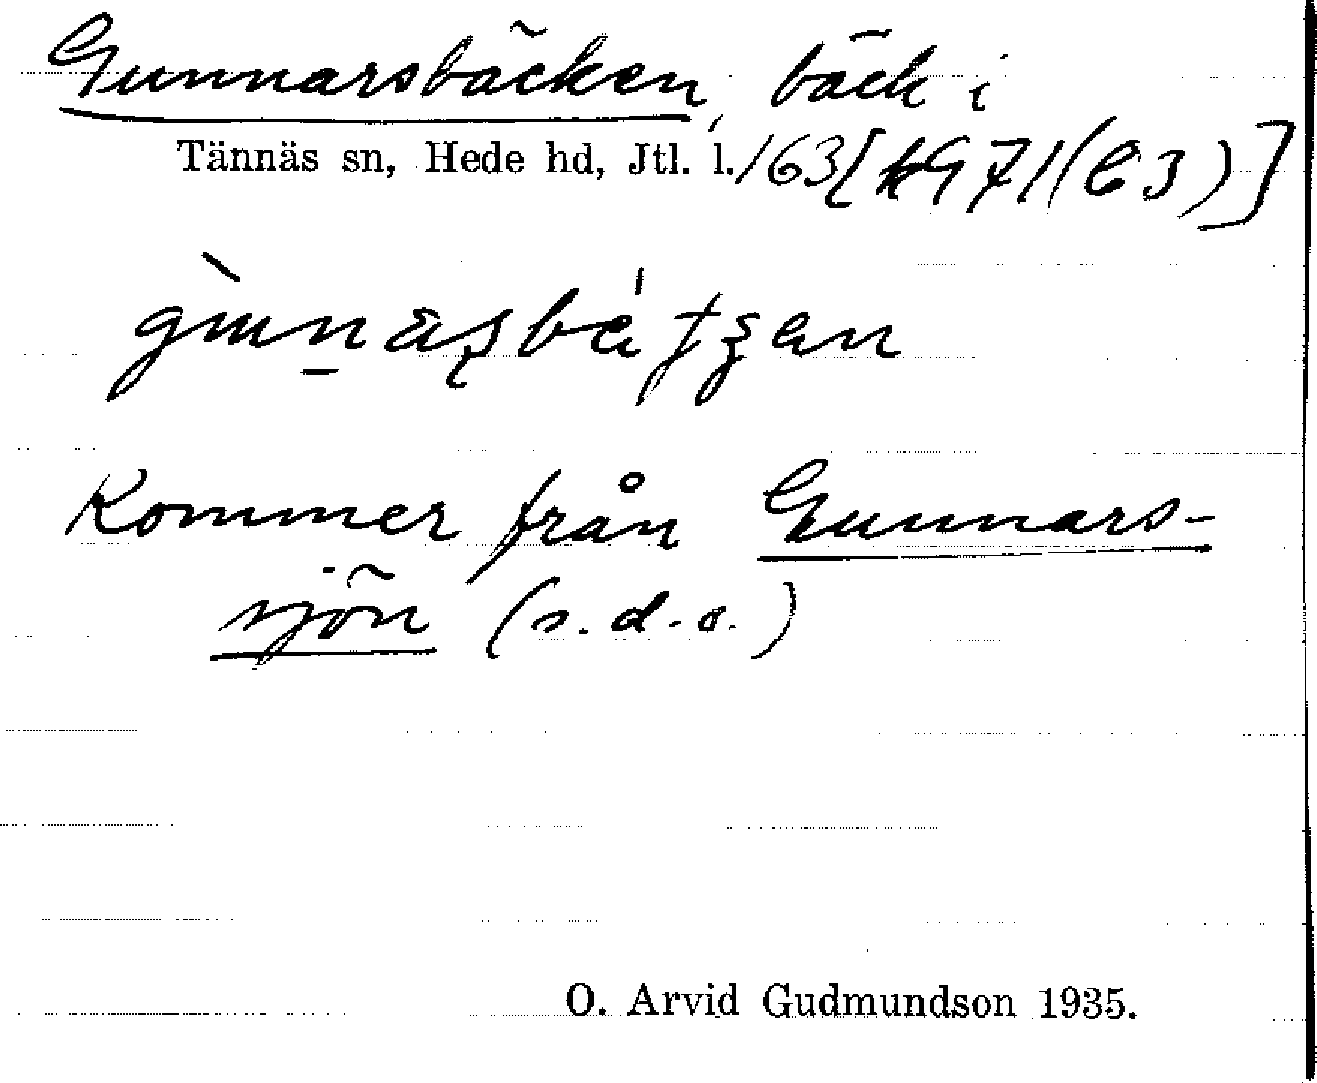 Gunnarsbäcken, bäck i
Tännäs sn, Hede hd, Jtl. l. 163 [4971(C3)]
Kommer från Gunnars-
sjön (s.d.o.)
O. Arvid Gudmundson 1935.